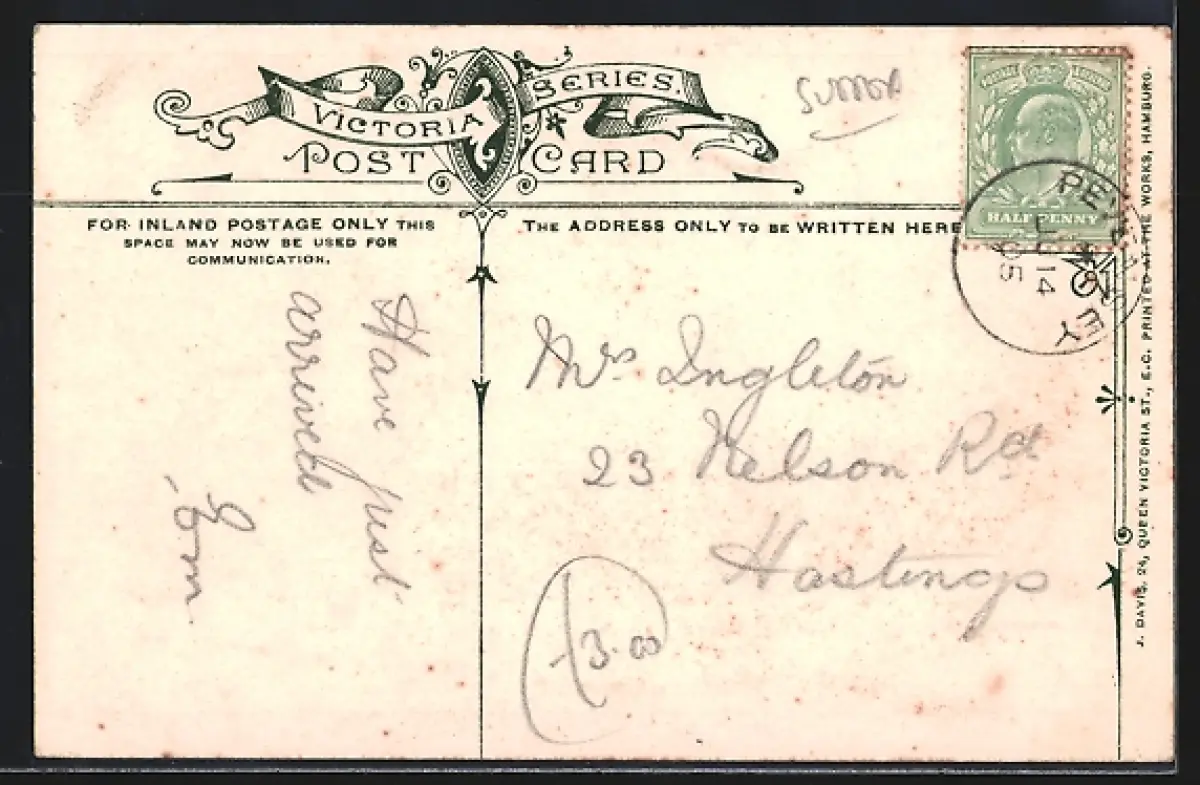 VICTORIA SERIES.
POST CARD
FOR INLAND POSTAGE ONLY THIS
SPACE MAY NOW BE USED FOR
COMMUNICATION.
THE ADDRESS ONLY TO BE WRITTEN HERE
HALF PENNY
14
05
Have just
arrived
Tom
Mrs Ingleton
23 Nelson Rd
Hastings
3.00
J. DAVIS, 24, QUEEN VICTORIA ST., E.C. PRINTED AT THE WORKS, HAMBURG.